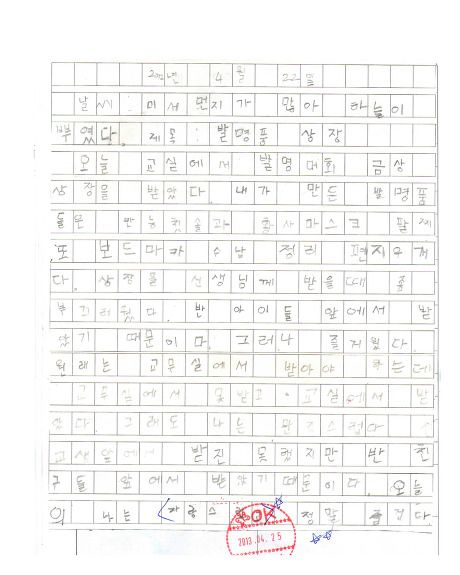 4월 22일
날씨: 미서 먼지가 많아 하늘이
뿌였다. 제목: 발명품 상장
오늘 교실에서 발명대회 금상
상장을 받았다. 내가 만든 발명품
들은 만능 칫솔과 황사마스크 팔찌
또 보드마카 수납 정리 편지우개
다. 상장을 선생님께 받을때 좀
부끄러웠다. 반 아이들 앞에서 받
았기 때문이다. 그러나 즐거웠다.
원래는 교무실에서 받아야 하는데
교무실에서 못받고 교실에서 받
았다. 그래도 나는 만족스럽다
교사앞에서 받진 못했지만 반 친
구들 앞에서 받았기 때문이다. 오늘
의 나는 자랑스 정말 즐겁다.
OK
2013.04.25